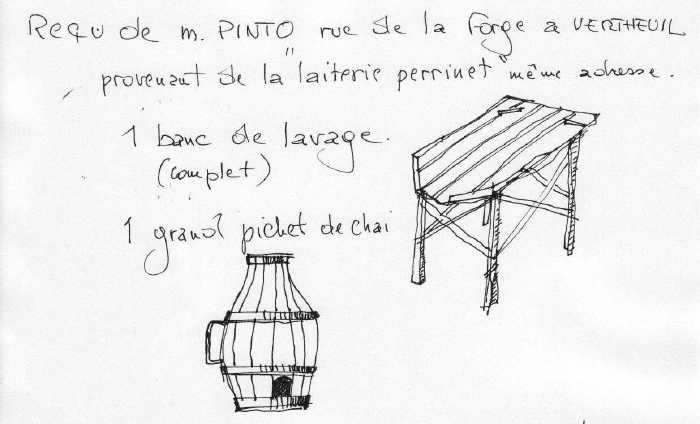 Reçu de m. PINTO rue de la Forge a VERTHEUIL
provenant de la "laiterie perrinet" même adresse.
1 banc de lavage.
(complet)
1 grand pichet de chai